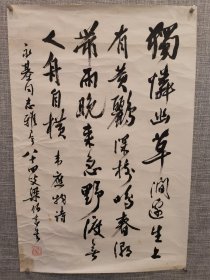 獨憐幽草澗邊生上
有黄鸝深樹鳴春潮
帶雨晚来急野渡無
人舟自横 韋應物詩
永基同志雅令 八十四叟梁